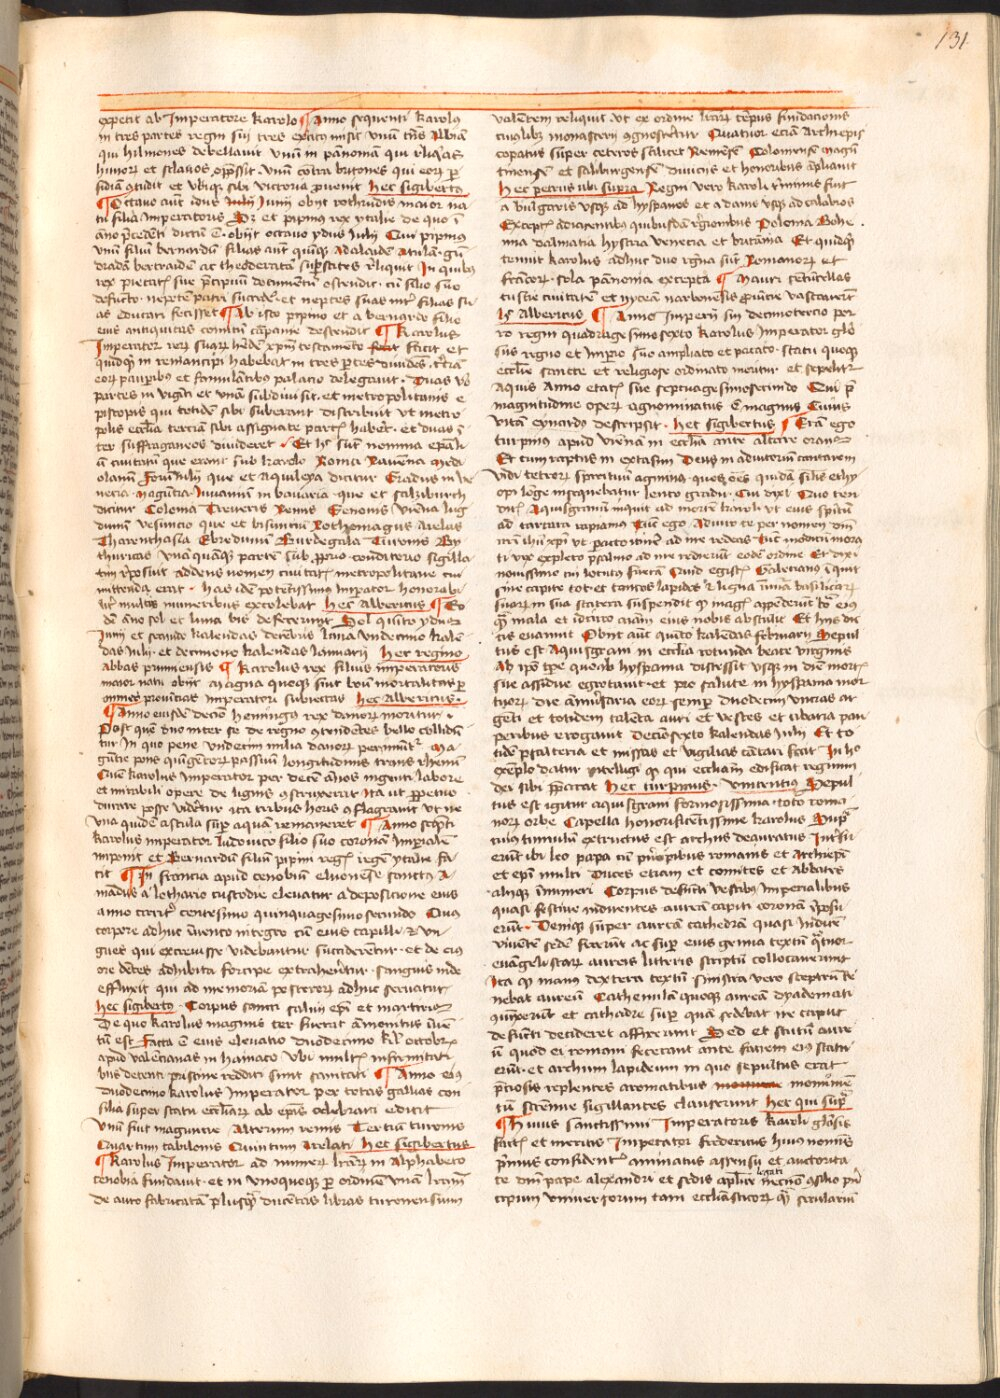 131
expetit ab Imperatore karolo ¶ Anno sequenti karolus
in tres partes regni sui tres exercitus misit unum trans Albiam
qui hilmones debellavit unum in pannoniam qui
hunorum et sclavos oppressit. unum contra britones qui eorum
sidiam et ubique sibi victoria provenit hec sigibertus
¶ Octavo aut idus Iulii Iunii obiit rothrudis maior na
tu filia Imperatoris et pipinus rex ytalie de quo in
anno precedenti dictum est obiit octavo ydus Iulii Qui pipinus
unum filium bernardum filias aut quinque Adalaidem Atulam gun
dradam bertraidem ac theoderatam superstites reliquit In quibus
rex pietatis sue precipuum documentum ostendit cum filio suo
defuncto nepotem patri succedere et neptes suas inter filias su
as educari fecisset ¶ Ab isto pipino et a bernardo filio
eius antiquitas comitum campanie descendit ¶ karolus
Imperator rerum suarum heredem xpm testamento fecit et
quidquid in remancipi habebat in tres partes dividens terciam
eorum pauperibus et famulantibus palacio delegavit. Duas vero
partes in viginti et unam subdivisit. et metropolitanis e
piscopis qui totidem sibi suberant distribuit ut metro
polis ecclesia terciam sibi assignate partis haberet et duas in
ter suffraganeos divideret Et hec sunt nomina epali
um civitatum que erant sub karolo Roma Ravenna medi
olanum Forum Iulii que et Aquileya dicitur Gradus in ve
necia maguncia Iuvavium in bavaria que et salzburch
dicitur Colonia Treveris Remis Senonis vienna lug
dunum vesuncio que et bisuncium Rothomagus Arelas
Tharenthasia Ebredunum Burdegala Turonis By
thuricas unam quamque partem sub proprio conditorio sigilla
tim reposuit addens nomen civitatis metropolitane cui
mittenda erat hec idem potentissimus Imperator honorabi
liter multis muneribus excolebat hec Albericus ¶ Eo
dem anno sol et luna bis defecerunt Sol quinto ydus
Iunii et secundo kalendas decembris Luna undecimo kalen
das Iulii et decimo kalendas Ianuarii hec regino
abbas prumiensis ¶ Karolus rex filius imperatoris
maior natu obiit magna quoque fuit boum mortalitas per
omnes provincias imperatori subiectas hec Albericus
¶ Anno eiusdem decimo hemingus rex danorum moritur
Post quem duo inter se de regno contendentes bello collidun
tur In quo pene undecim milia danorum perimuntur Ma
guncie pons quingentorum passuum longitudinis trans rhenum
Quem karolus Imperator per decem annos ingenti labore
et mirabili opere de lignis construxerat Ita ut perpetuo
durare posse videretur ita tribus horis conflagravit ut ne
una quidem astula super aquam remaneret ¶ Anno sequenti
karolus imperator ludovico filio suo coronam Imperialem
imponit et Bernardum filium pipini regis regem ytalie fa
cit ¶ In francia apud cenobium elvonense sanctus A
mandus a lothario custodie elevatur a deposicione eius
anno centesimo quinquagesimo secundo Cuius
corpore adhuc invento integro cum eius capilli et un
gues qui excrevisse videbantur succiderentur et de eius
ore dentes adhibita forcipe extraherentur sanguis inde
effluxit qui ad memoriam posterorum adhuc servatur
hec sigibertus Corpus sancti salvii epi et martiris
De quo karolus magnus ter fuerat ammonitus inven
tum est Facta est eius elevatio duodecimo kl octobris
apud valencianas in hainaco ubi multi infirmitati
bus detenti pristine redditi sunt sanitati ¶ Anno eius
duodecimo karolus Imperator per totas gallias con
silia super statu ecclesiarum ab episcopis celebrari edicit
unum fuit maguncie Alterum remis Tercium turonis
Quartum cabilonis Quintum Arelati hec sigibertus
¶ Karolus Imperator ad numerum litterarum in Alphabeto
cenobia fundavit et in unoquoque per ordinem unam litteram
de auro fabricatam plusquam ducentas libras turonensium
valentem reliquit ut ex ordine litterarum tempus fundacionis
cuiuslibet monasterii cognosceretur Quatuor eciam Archiepis
copatus super ceteros scilicet Remensem Coloniensem magun
tinensem et saltzburgensem diviciis et honoribus ampliavit
hec petrus ubi supra Regni vero karoli termini fuit
a bulgaris usque ad hyspanos et a danis usque ad calabros
Exceptis adiacentibus quibusdam regionibus Polonia Bohe
mia dalmatia hystria venecia et britannia Et quidquid
tenuit karolus adhuc duo regna sunt Romanorum et
francorum sola pannonia excepta ¶ Mauri centucellas
tuscie civitatem et nyceam narbonensis provincie vastaverunt
hec Albericus ¶ Anno Imperii sui decimotercio por
ro regni quadragesimosexto karolus Imperator glorio
sus regno et Imperio suo ampliato et pacato. statu quoque
ecclesie sancte et religiose ordinato moritur et sepelitur
Aquis Anno etatis sue septuagesimosecundo Qui pre
magnitudine operum cognominatus est magnus Cuius
vitam eynardus descripsit hec sigibertus ¶ Eram ego
turpinus apud viennam in ecclesia ante altare orans
Et cum raptus in extasim Deus in adiutorium cantarem
vidi tetrorum spirituum agmina ques omnes quidam similis ethy
opi longe insequebatur lento gradu. Cui dixi Quo ten
dit Aquisgrani inquit ad mortem karoli ut eius spiritum
ad tartara rapiamus Cui ego Adiuro te per nomen dni
nri ihu xpi ut peracto itinere ad me redeas Tunc modicum mora
ti vix expleto psalmo ad me redierunt eodem ordine Et dixi
novissimo cui locutus fueram Quid egistis Galecianus inquit
sine capite tot et tantos lapides et ligna innumera basilicarum
suarum in sua statera suspendit quod magis appenderunt bona eius
quam mala et idcirco animam eius nobis abstulit Et hiis dic
tis evanuit Obiit aut quinto kalendas februarii Sepul
tus est Aquisgrani in ecclesia rotunda beate virginis
Ab ipso tempore quo ab hyspania discessit usque in diem mortis
sue assidue egrotavit et pro salute in hyspania mor
tuorum die anniversaria eorum semper duodecim uncias ar
genti et totidem talenta auri et vestes et cibaria pau
peribus erogavit Decimosexto kalendas Iulii Et to
tidem psalteria et missas et vigilias cantari fecit In hoc
exemplo datur intelligi quod qui ecclesiam edificat regnum
dei sibi preparat hec turpinus. vincentius Sepul
tus est igitur aquisgrani formosissima toto roma
norum orbe Capella honorificentissime karolus Cuius
cuius tumulum extructus est archus deauratus Interfu
erunt ibi leo papa cum principibus romanis et Archiepi
et epi multi Duces etiam et comites et Abbates
aliique innumeri Corpus defuncti vestibus Imperialibus
quasi festive induentes auream capiti coronam imposu
erunt Denique super auream cathedram quasi Iudicem
viventem sedere fecerunt ac super eius genua textum quatuor
evangelistarum aureis litteris scriptum collocaverunt
Ita quod manus dextera textum sinistra vero sceptrum te
nebat aureum Cathenulam quoque auream dyademati
coniunxerunt et cathedre super quam sedebat ne caput
defuncti decideret affixerunt Sed et scutum aure
um quod ei romani fecerant ante faciem eius statu
erunt et archum lapideum in quo sepultus erat
preciosis replentes aromatibus monumen
tum strenue sigillantes clauserunt hec qui supra
¶ Huius sanctissimi Imperatoris karoli gloriosis
factis et meritis Imperator fredericus huius nominis
primus confidenter animatus assensu et auctorita
te dni pape alexandri et sedis aplice legati necnon consilio prin
cipum universorum tam ecclesiasticorum quam secularium